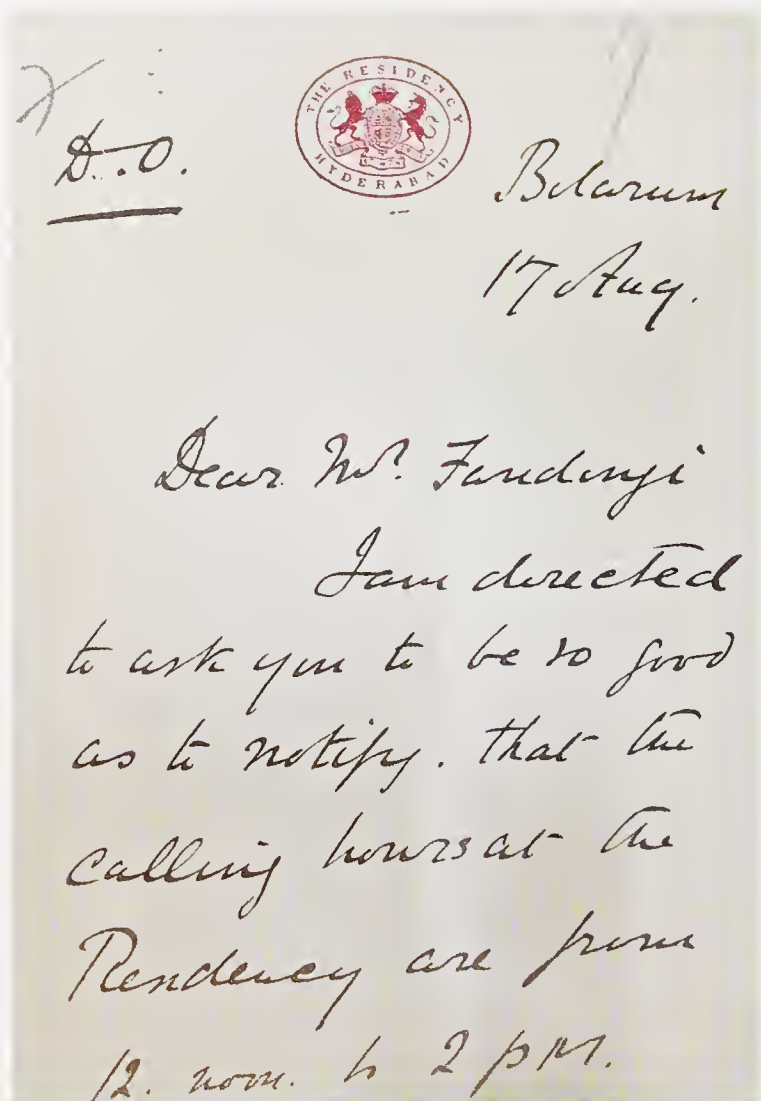 D.O.
THE RESIDENCY
HYDERABAD
Bolarum
17 Aug.
Dear Mr. Faridunji
I am directed
to ask you to be so good
as to notify. that the
calling hours at the
Residency are from
12. noon. to 2 p.m.